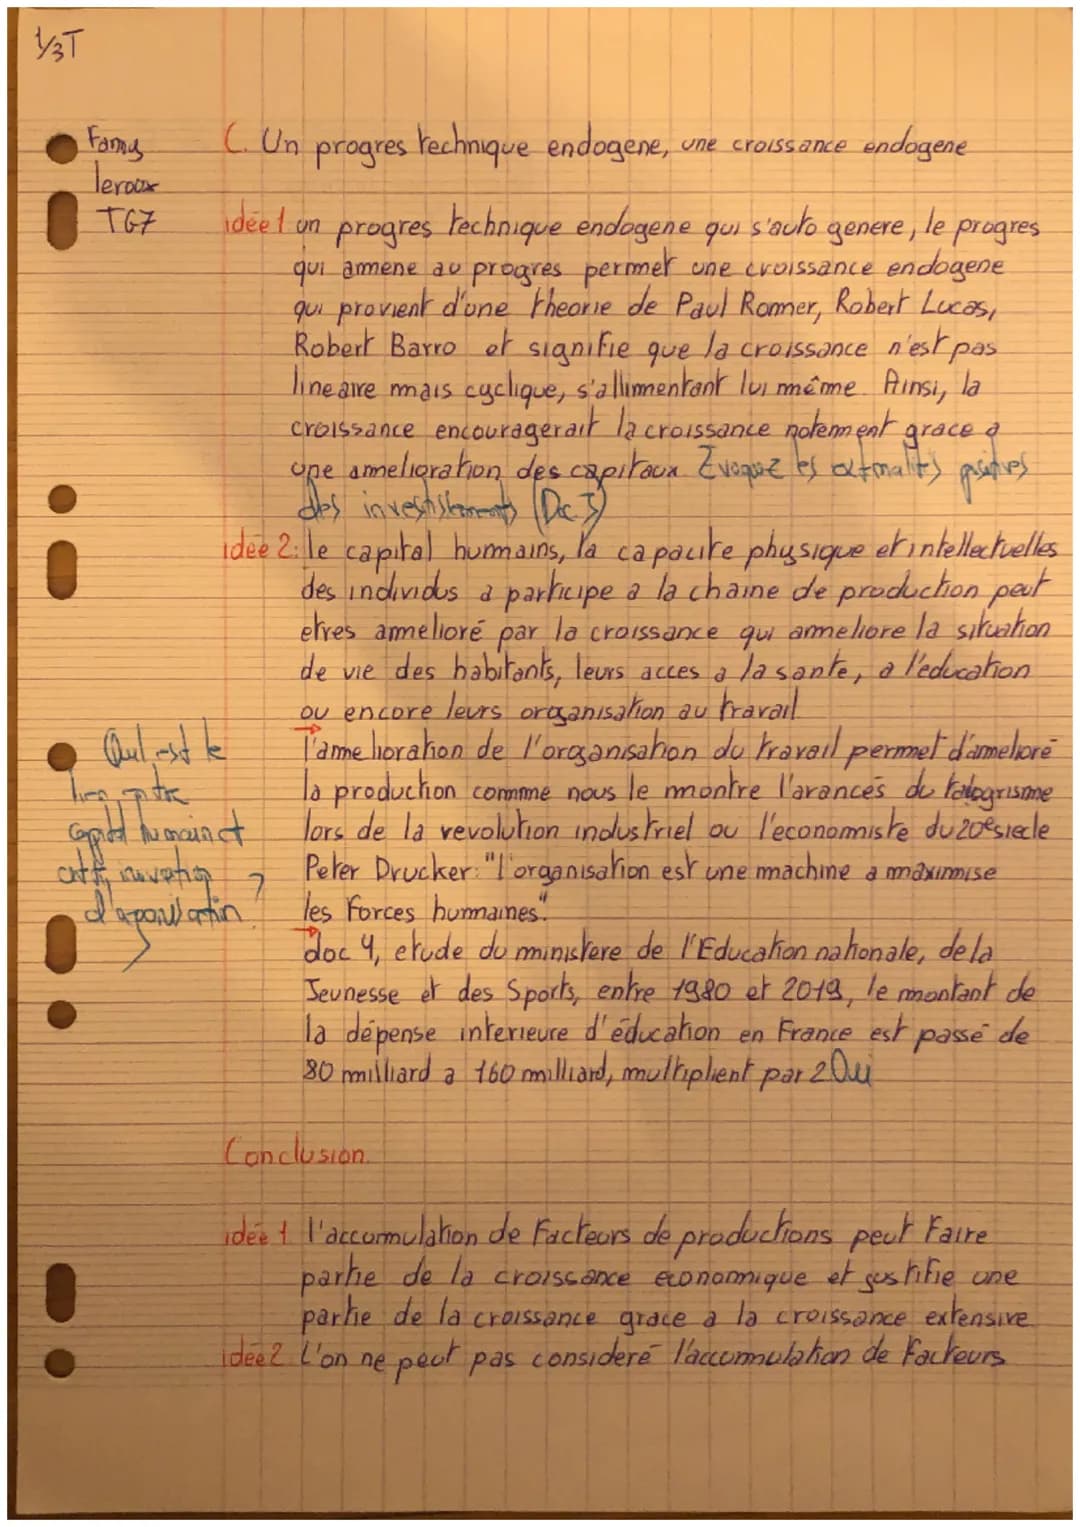 1/3T
Fanny
leroux
TG7
C. Un progres technique endogene, une croissance endogene
idée 1 un progres technique endogene qui s'auto genere, le progres
qui amene au progres permet une croissance endogene
qui provient d'une theorie de Paul Rommer, Robert Lucas,
Robert Barro et signifie que la croissance n'est pas
lineaire mais cyclique, s'allimentant lui même. Ainsi, la
croissance encouragerait la croissance notemment grace a
une amelioration des capitaux Evoquez les externalités positives
des investissements (Doc 3)
idée 2: le capital hummains, la capacite physique et intellectuelles
des individus a participe a la chaine de production peut
etres ammelioré par la croissance qui ammeliore la situation
de vie des habitants, leurs acces a la sante, a l'education
ou encore leurs organisation au travail
→ l'ammelioration de l'organisation du travail permet d'amelioré
la production comme nous le montre l'arancés du
lors de la revolution industriel ou l'economiste du 20e siecle
Peter Drucker: "l'organisation est une machine a maximise
les forces hummaines".
→ doc 4, etude du ministere de l'Education nationale, de la
Jeunesse et des Sports, entre 1980 et 2019, le montant de
la dépense interieure d'éducation en France est passé de
80 milliard a 160 milliard, multiplient par 2 Oui
Quel est le
lien entre
capital humain et
innovation
?
Conclusion.
idée 1 l'accumulation de facteurs de productions peut faire
partie de la croissance economique et justifie une
partie de la croissance grace a la croissance extensive
idée 2 L'on ne peut pas consideré l'accumulation de facteurs